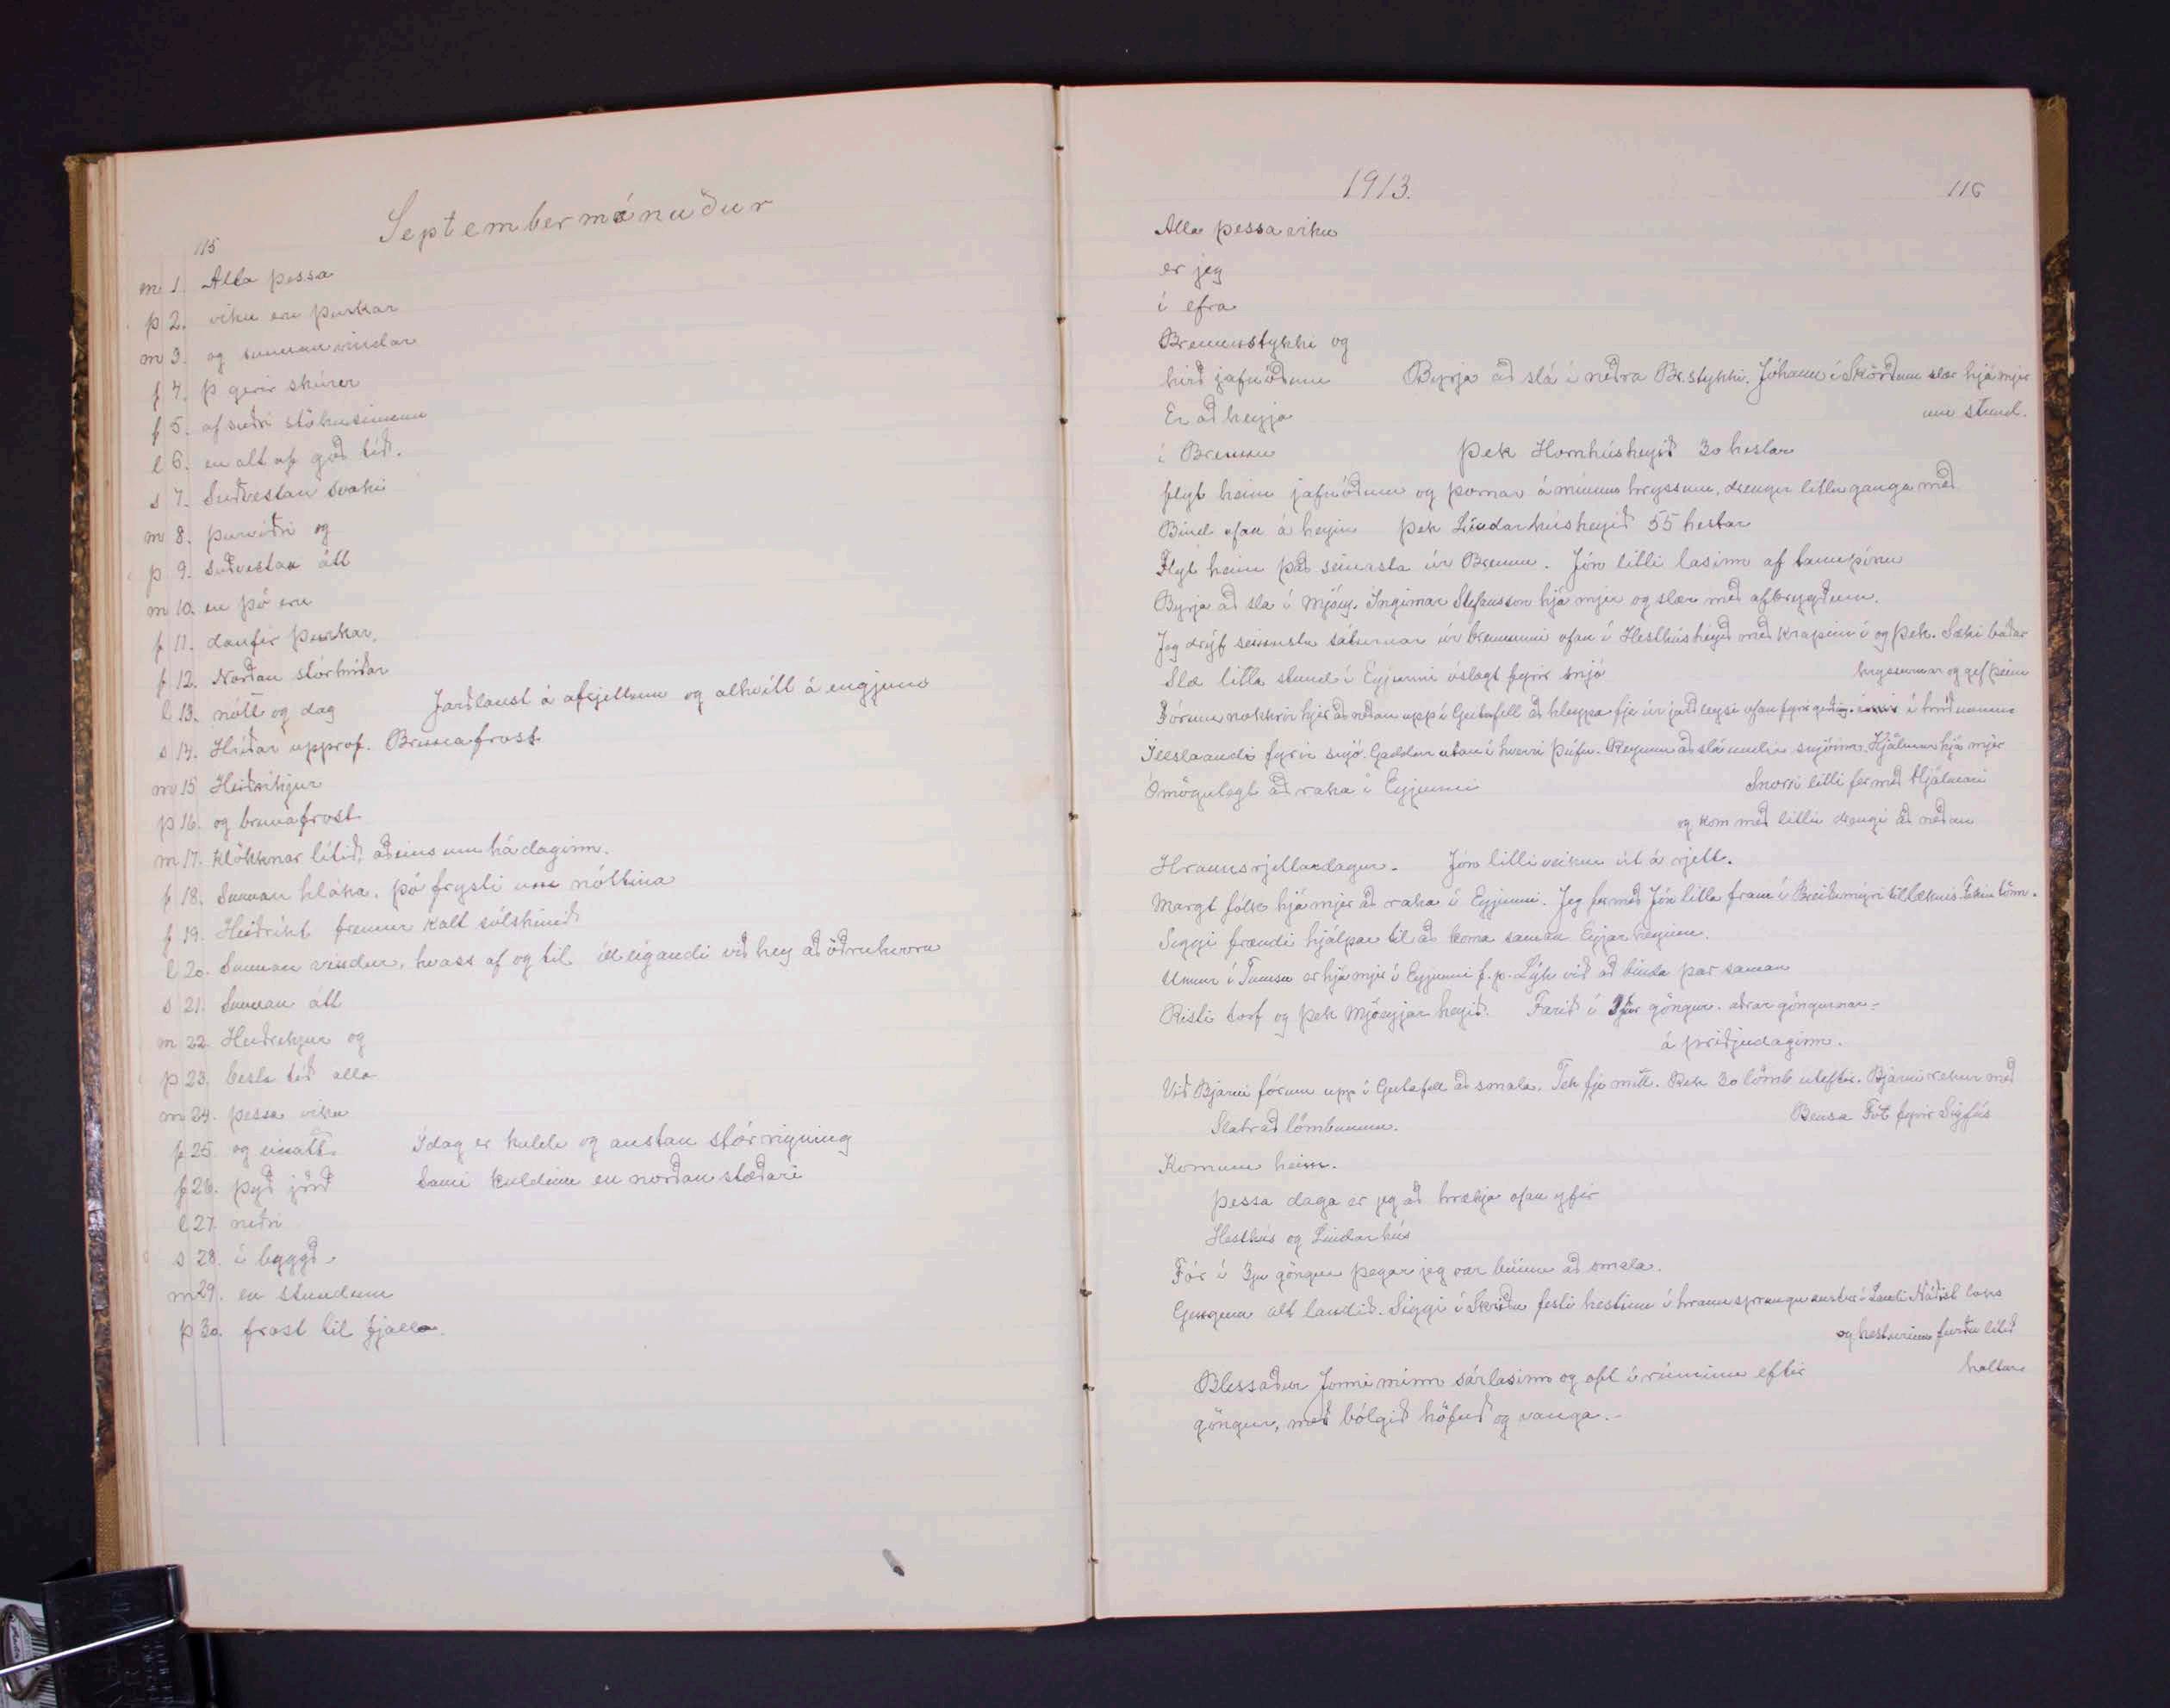 115
Septembermánuður
m 1. Alla þessa
þ 2. viku eru þurkar
m 3. og sunnanvindar
f 4. þ gerir skúrir
f 5. af suðri stökusinnum
l 6. en alt af góð tíð.
s 7. Suðvestan svaki
m 8. þurviðri og
þ 9. Suðvestan átt
m 10. en þó eru
f 11. daufir þurkar.
f 12. Norðan stórhríðar
l 13. nótt og dag Jarðlaust á afrjettum og alhvítt á engjum
s 14. Hríðar upprof. Brunafrost
m 15 Heiðríkjur
þ 16. og brunafrost
m 17. Klökknar lítið, aðeins um hádaginn.
f 18. Sunnan hláka. þó frysti um nóttina
f 19. Heiðríkt fremur kalt sólskinið
l 20. Sunnan vindur, hvass af og til illeigandi við hey að öðruhvoru
s 21. Sunnan átt
m 22. Heiðrikjur og
þ 23. besta tíð alla
m 24. þessa viku
f 25. og einatt Ídag er kuldi og austan stórrigning
f 26. þýð jörð Sami kuldinn en norðan stæðari
l 27. neðri
s 28. í byggð
m 29. en stundum
þ 30. frost til fjalla.
1913.
116
Alla þessa viku
er jeg
í efra
Brennustykki og
hirð jafnóðum Byrja að slá í neðra Br.stykki. Jóhann í Skörðum slær hjá mjer
Er að heyja um stund.
í Brennu Þek Hornhúsheyið 30 hestar
flyt heim jafnóðum og þornar á mínum hryssum, drengir litlu ganga með
Bind ofan á heyin Þek Lindarhúsheyið 55 hestar
Flyt heim það seinasta úr Brennu. Jón litli lasinn af tannpínu
Byrja að sla í Mjóey. Ingimar Stefansson hjá mjer og slær með afbrygðum.
Jeg dríf seinustu sáturnar úr brennunni ofan í Hesthúsheyið með krapinu í og þek. Sæki báðar
Slæ litla stund í Eyjunni óslægt fyrir snjó hryssurnar og gef þeim
Fórum nokkrir hjer að neðan upp í Geitafell að hleypa fje úr jarðleysi ofan fyrir í hríðunum
Íllslaandi fyrir snjó. Gaddur utan í hverri þúfu. Reynum að slá undir snjóinn. Hjálmar hjá mjer
Ómögulegt að raka í Eyjunni Snorri litli fer með Hjálmari
og kom með litlu drengi að neðan
Hraunsrjettardagur. Jón litli veikur út á rjett.
Margt fólk hjá mjer að raka í Eyjunni. Jeg fer með Jón litla fram í Breiðumýri til læknis. Tekin tönn.
Siggi frændi hjálpar til að koma saman Eyjar heyinu.
Unnur í Tumsu er hjá mjer í Eyjunni f.p. Lýk við að binda þar saman
Risti torf og þek Mjóeyjar heyið. Farið í göngur. aðrar göngurnar
á þriðjudaginn.
Við Bjarni fórum upp í Geitafell að smala. Tek fje mitt. Rek 30 lömb úteftir. Bjarni rekur með
Slatrað lömbunum. Bensa Föt fyrir Sigfús
Komum heim.
þessa daga er jeg að hrækja ofan yfir
Hesthús og Lindarhús
Fór í 3ju göngur þegar jeg var búinn að smala.
Gengum alt landið. Siggi í Skörðu festi hestinn í hraunsprungu austur í Landi. Náðist loks
og hesturinn furðu lítið
haltur
Blessaður Jonni minn sárlasinn og oft í rúminu eftir
göngur, með bólgið höfuð og vanga.